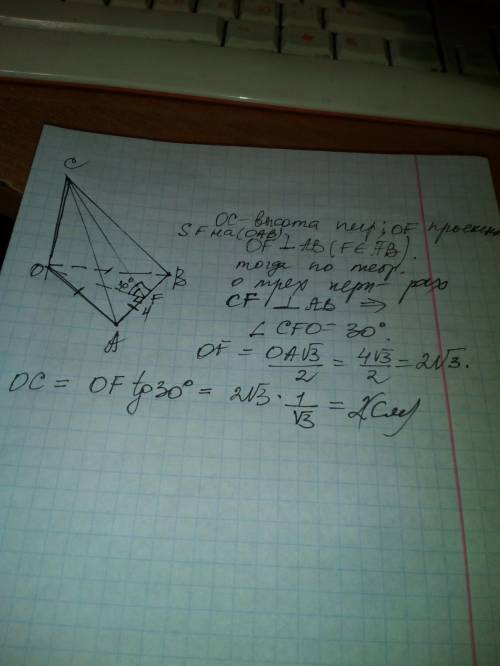 C
O
B
A
F
4
30°
OC - высота пир; OF проекция
SF на (OAB);
OF ⊥ AB (F ∈ AB).
тогда по теор.
о трех перп-рах
CF ⊥ AB ⇒
∠ CFO = 30°.
OF = OA√3/2 = 4√3/2 = 2√3.
OC = OF tg 30° = 2√3 · 1/√3 = 2(см)